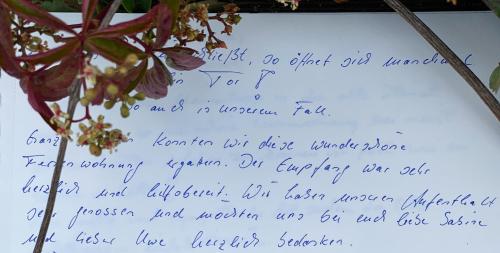 schließt, so öffnet sich manchmal
ein Tor
so auch in unserem Fall.
Ganz konnten wir diese wunderschöne
Ferienwohnung ergattern. Der Empfang war sehr
herzlich und hilfsbereit. Wir haben unseren Aufenthalt
sehr genossen und möchten uns bei euch liebe Sabine
und lieber Uwe herzlich bedanken.